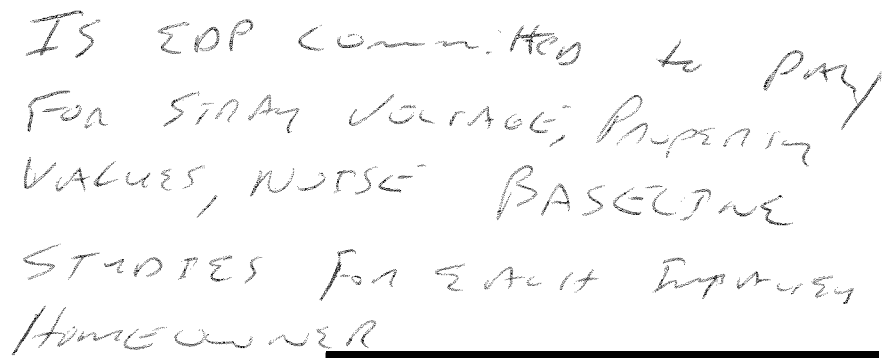 Is EDP committed to pay
For stray voltage, property
values, noise baseline
studies for each impacted
homeowner